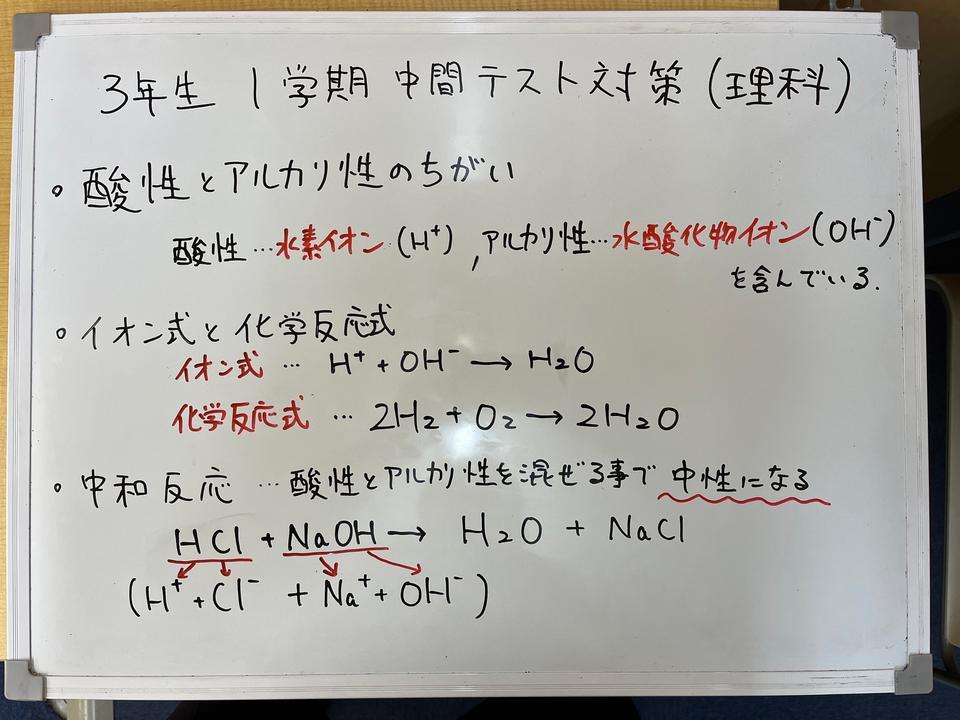 3年生 1学期 中間テスト対策(理科)
。酸性とアルカリ性のちがい
酸性…水素イオン(H⁺),アルカリ性…水酸化物イオン(OH⁻)
を含んでいる.
。イオン式と化学反応式
イオン式 … H⁺+OH⁻→H₂O
化学反応式 … 2H₂+O₂→2H₂O
。中和反応 …酸性とアルカリ性を混ぜる事で中性になる
HCl+NaOH→ H₂O + NaCl
(H⁺+Cl⁻ +Na⁺+OH⁻)